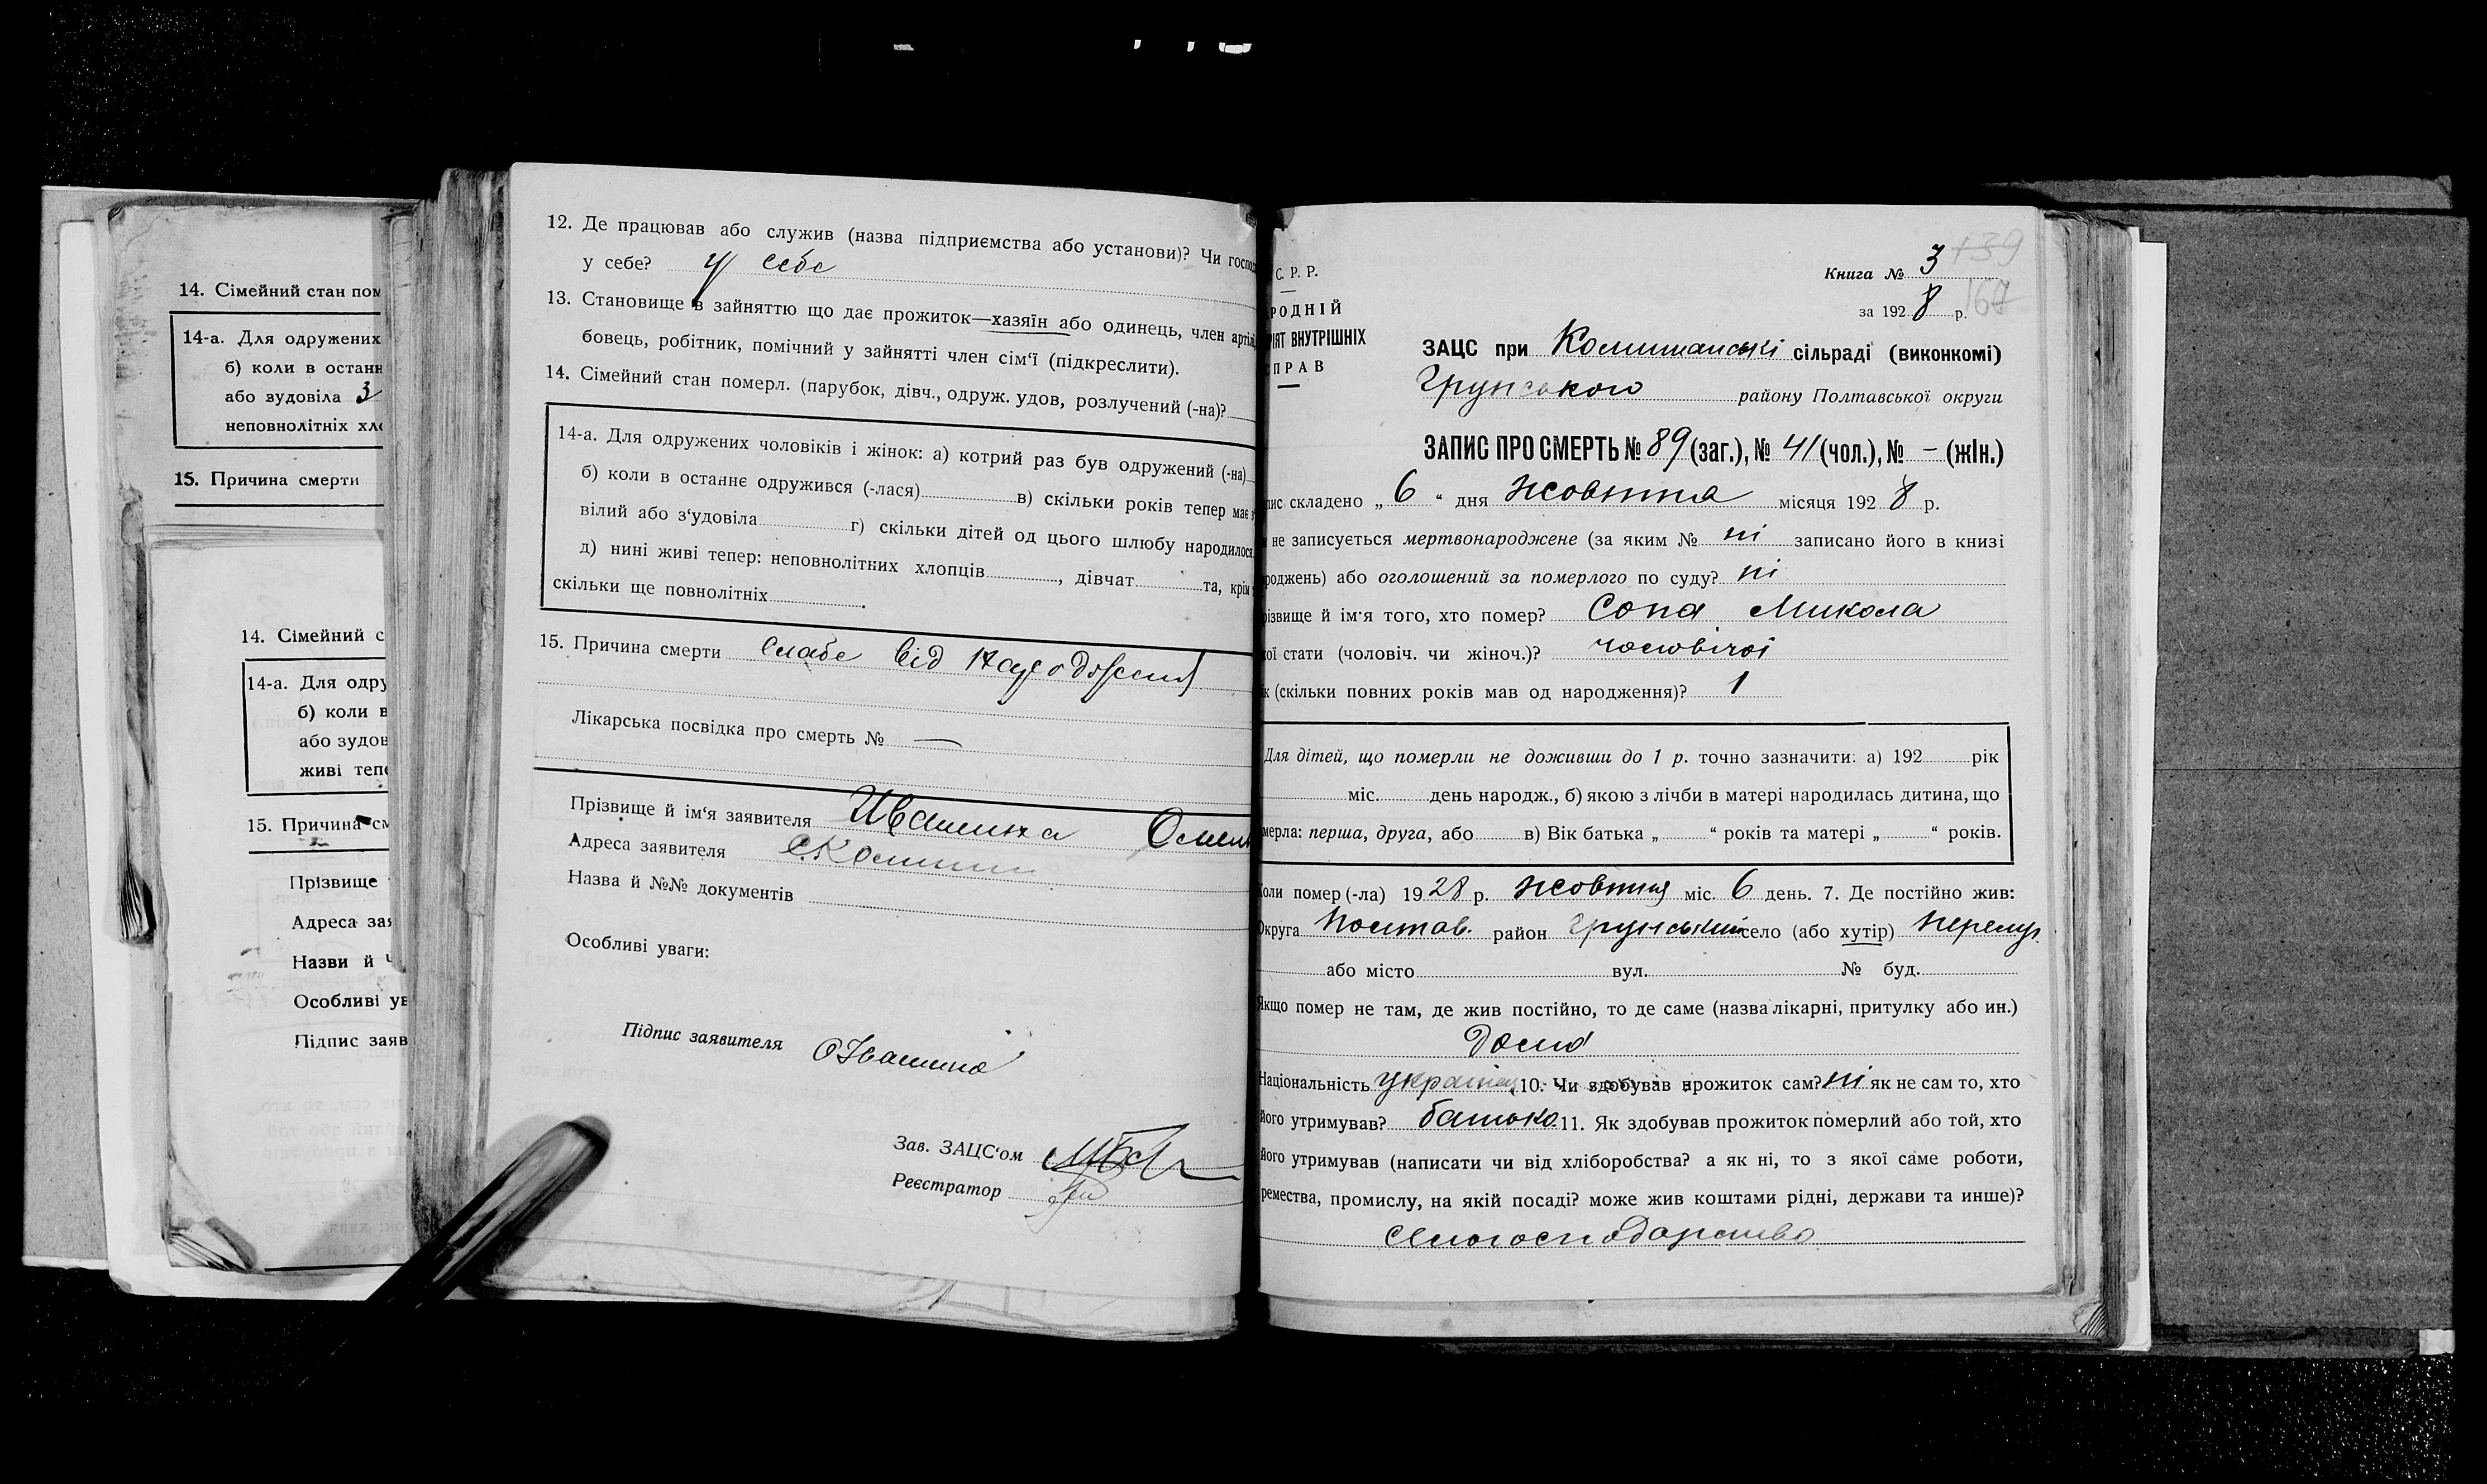 14. Сімейний стан пом
14-а. Для одружених
б) коли в останн
або зудовіла 3
неповнолітніх хло
15. Причина смерти
14. Сімейний с
14-а. Для одру
б) коли в
або зудов
живі тепе
15. Причина см
Прізвище
Адреса зая
Назви й
Особливі ув
Підпис заяв
12. Де працював або служив (назва підприємства або установи)? Чи господ
у себе? у себе
13. Становище в зайняттю що дає прожиток—хазяїн або одинець, член артіл
бовець, робітник, помічний у зайнятті член сім'ї (підкреслити).
14. Сімейний стан померл. (парубок, дівч., одруж. удов, розлучений (-на)?
14-а. Для одружених чоловіків і жінок: а) котрий раз був одружений (-на)
б) коли в останнє одружився (-лася) в) скільки років тепер має з
вілий або з'удовіла г) скільки дітей од цього шлюбу народилося
д) нині живі тепер: неповнолітних хлопців , дівчат та, крім
скільки ще повнолітніх .
15. Причина смерти слабе від народження
Лікарська посвідка про смерть № —
Прізвище й ім'я заявителя Ивашина Омел
Адреса заявителя с. Комиши
Назва й №№ документів
Особливі уваги:
Підпис заявителя О Ивашина
Зав. ЗАЦС'ом
Реєстратор
С. Р. Р.
РОДНІЙ
РІЯТ ВНУТРІШНІХ
СПРАВ
Книга № 3 139
за 1928 р. 167
ЗАЦС при Комишанські сільраді (виконкомі)
Грунського району Полтавської округи
ЗАПИС ПРО СМЕРТЬ № 89 (заг.), № 41 (чол.), № – (жін.)
пис складено „ 6 “ дня жовтня місяця 1928 р.
не записується мертвонароджене (за яким № ні записано його в книзі
роджень) або оголошений за померлого по суду? ні
різвище й ім'я того, хто помер? Сопа Микола
кої стати (чоловіч. чи жіноч.)? чоловічої
к (скільки повних років мав од народження)? 1
Для дітей, що померли не доживши до 1 р. точно зазначити: а) 192 рік
міс. день народж., б) якою з лічби в матері народилась дитина, що
мерла: перша, друга, або в) Вік батька „ “ років та матері „ “ років.
Коли помер (-ла) 1928 р. жовтня міс. 6 день. 7. Де постійно жив:
Округа Полтав. район Грунський село (або хутір)
або місто вул. № буд.
Якщо помер не там, де жив постійно, то де саме (назва лікарні, притулку або ин.)
Дома
Національність українец 10. Чи здобував прожиток сам? ні як не сам то, хто
його утримував? батько 11. Як здобував прожиток померлий або той, хто
його утримував (написати чи від хліборобства? а як ні, то з якої саме роботи,
ремества, промислу, на якій посаді? може жив коштами рідні, держави та инше)?